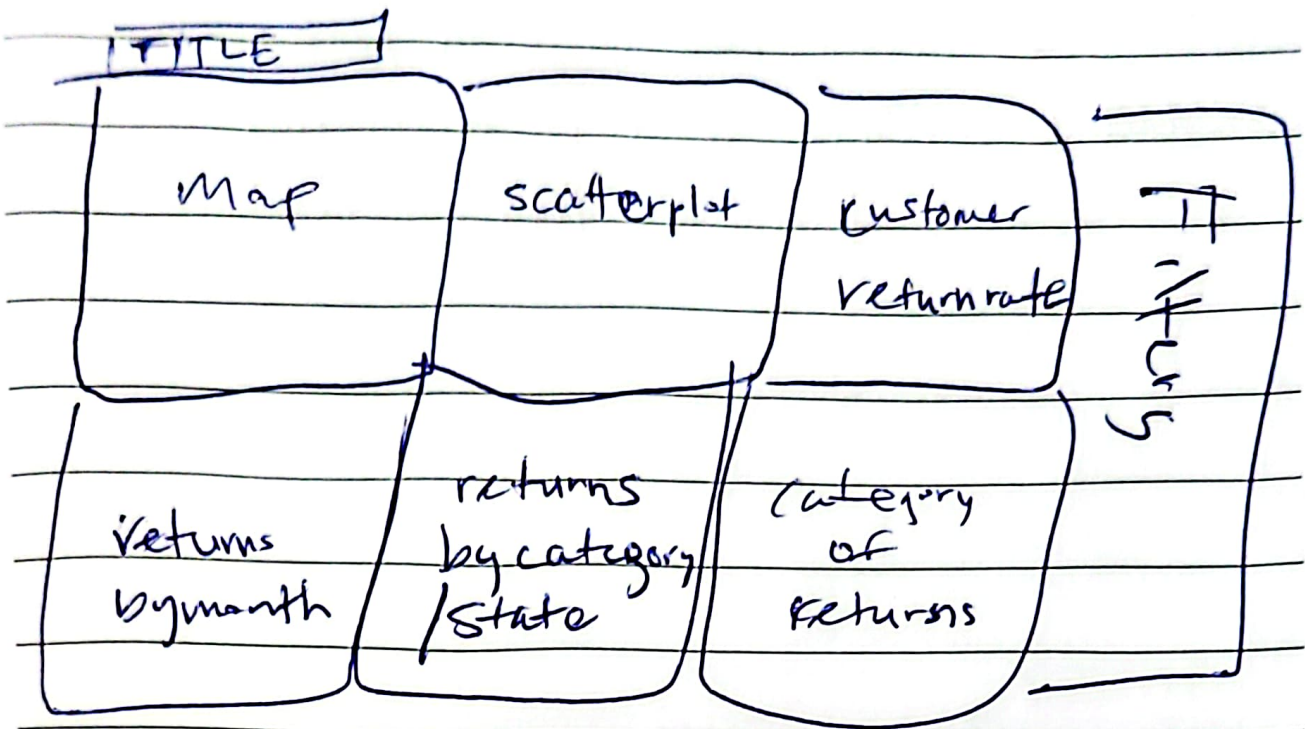 TITLE
Map
scatterplot
customer
return rate
returns
by month
returns
by category
/State
category
of
returns